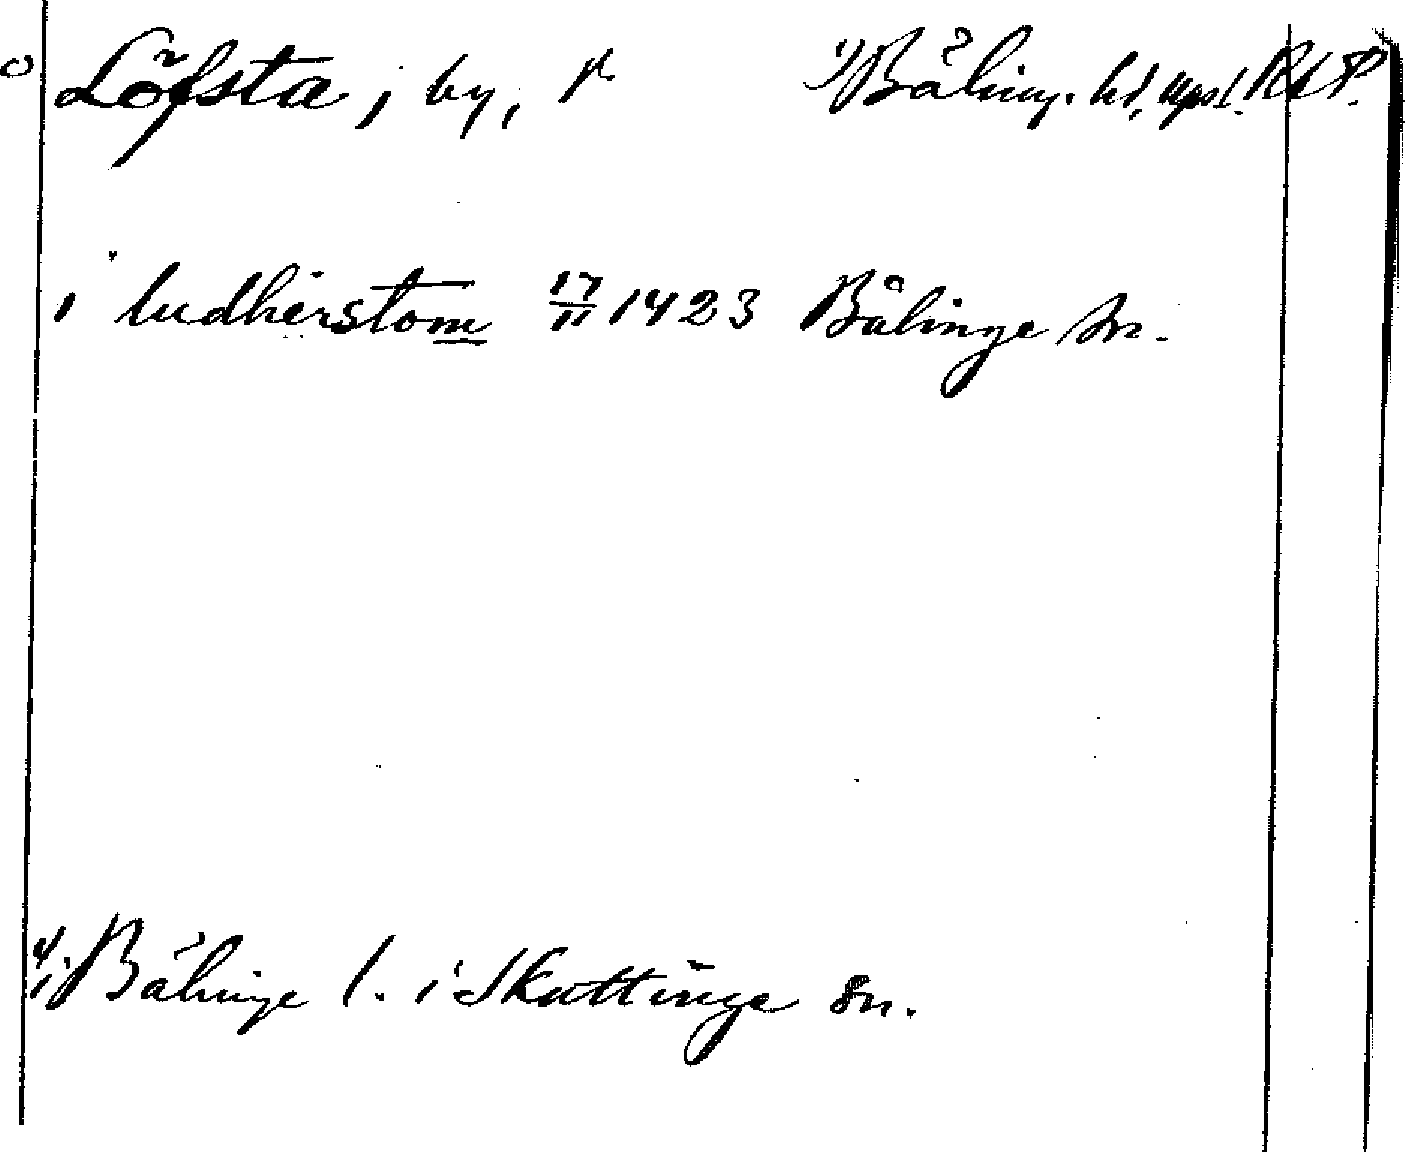 Löfsta, by, 1) Båling. hd, Upsl.
i ludherstom 17/11 1423 Bälinge sn.
1) i Bälinge l. i Skuttunge sn.